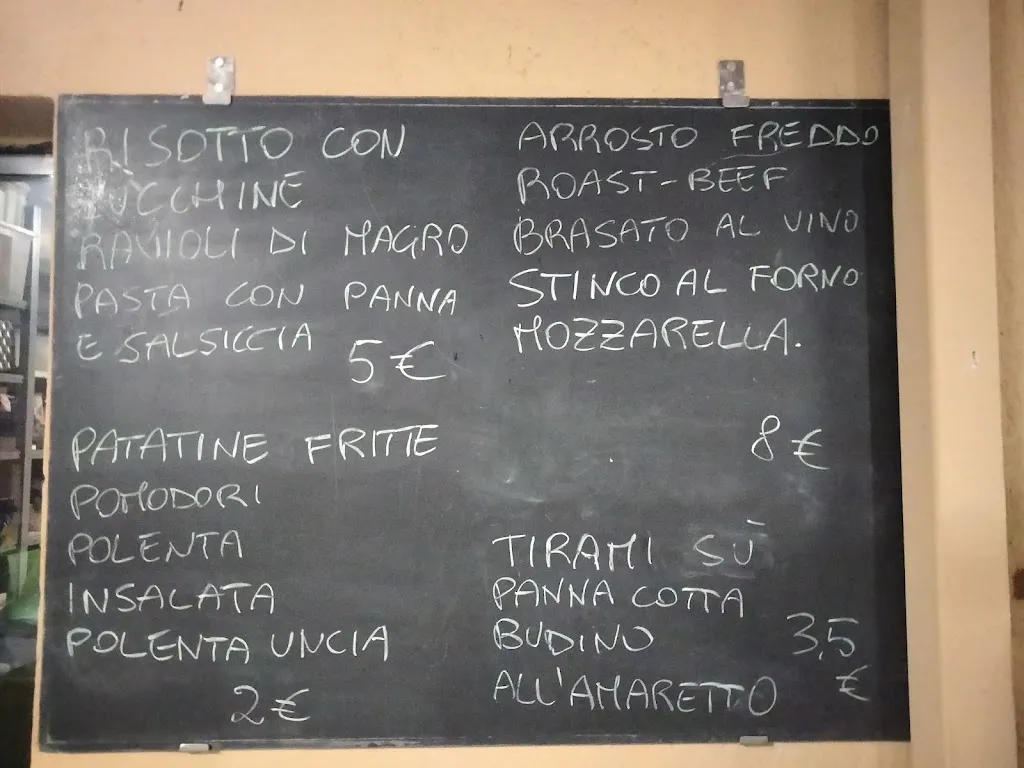 RISOTTO CON
ZUCCHINE
RAVIOLI DI MAGRO
PASTA CON PANNA
E SALSICCIA 5€
PATATINE FRITTE
POMODORI
POLENTA
INSALATA
POLENTA UNCIA
2€
ARROSTO FREDDO
ROAST-BEEF
BRASATO AL VINO
STINCO AL FORNO
MOZZARELLA.
8€
TIRAMI SÙ
PANNA COTTA
BUDINO 3,5
ALL'AMARETTO €